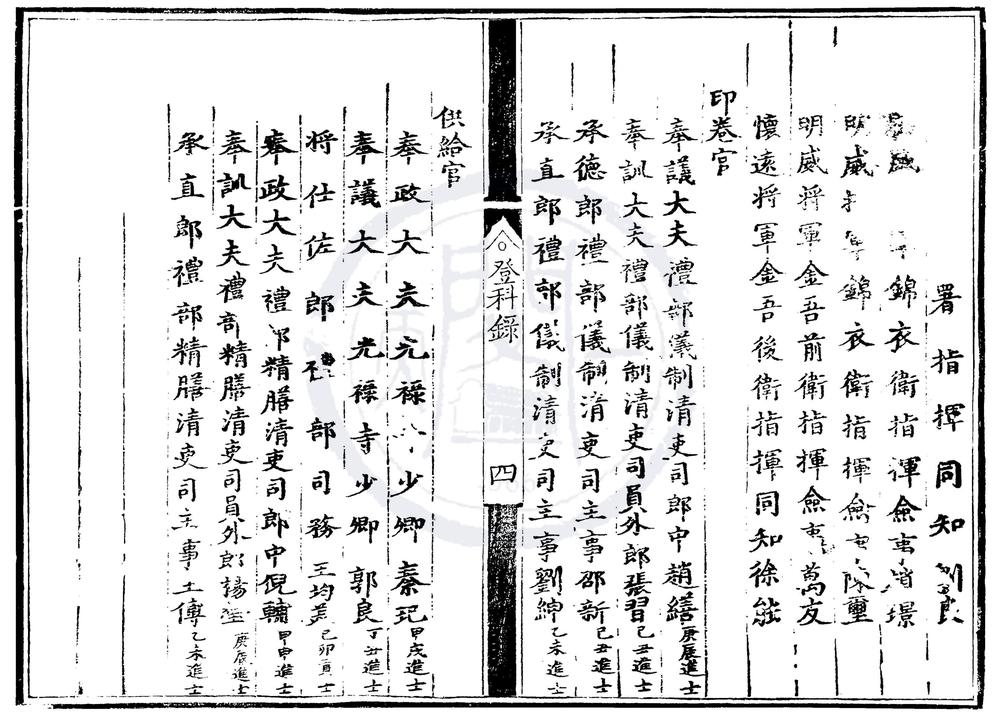 署指揮同知劉良
威軍錦衣衛指揮僉事璟
明威將軍錦衣衛指揮僉事陳璽
明威將軍金吾前衛指揮僉事萬友
懷遠將軍金吾後衛指揮同知徐能
印卷官
奉議大夫禮部儀制清吏司郎中趙繕庚辰進士
奉訓大夫禮部儀制清吏司員外郎張習己丑進士
承德郎禮部儀制清吏司主事邵新己丑進士
承直郎禮部儀制清吏司主事劉紳乙未進士
登科錄
四
供給官
奉政大夫光祿寺少卿秦玘甲戌進士
奉議大夫光祿寺少卿郭良丁丑進士
將仕佐郎禮部司務王均美己卯貢士
奉政大夫禮部精膳清吏司郎中倪輔甲申進士
奉訓大夫禮部精膳清吏司員外郎楊庚辰進士
承直郎禮部精膳清吏司主事王傅乙未進士